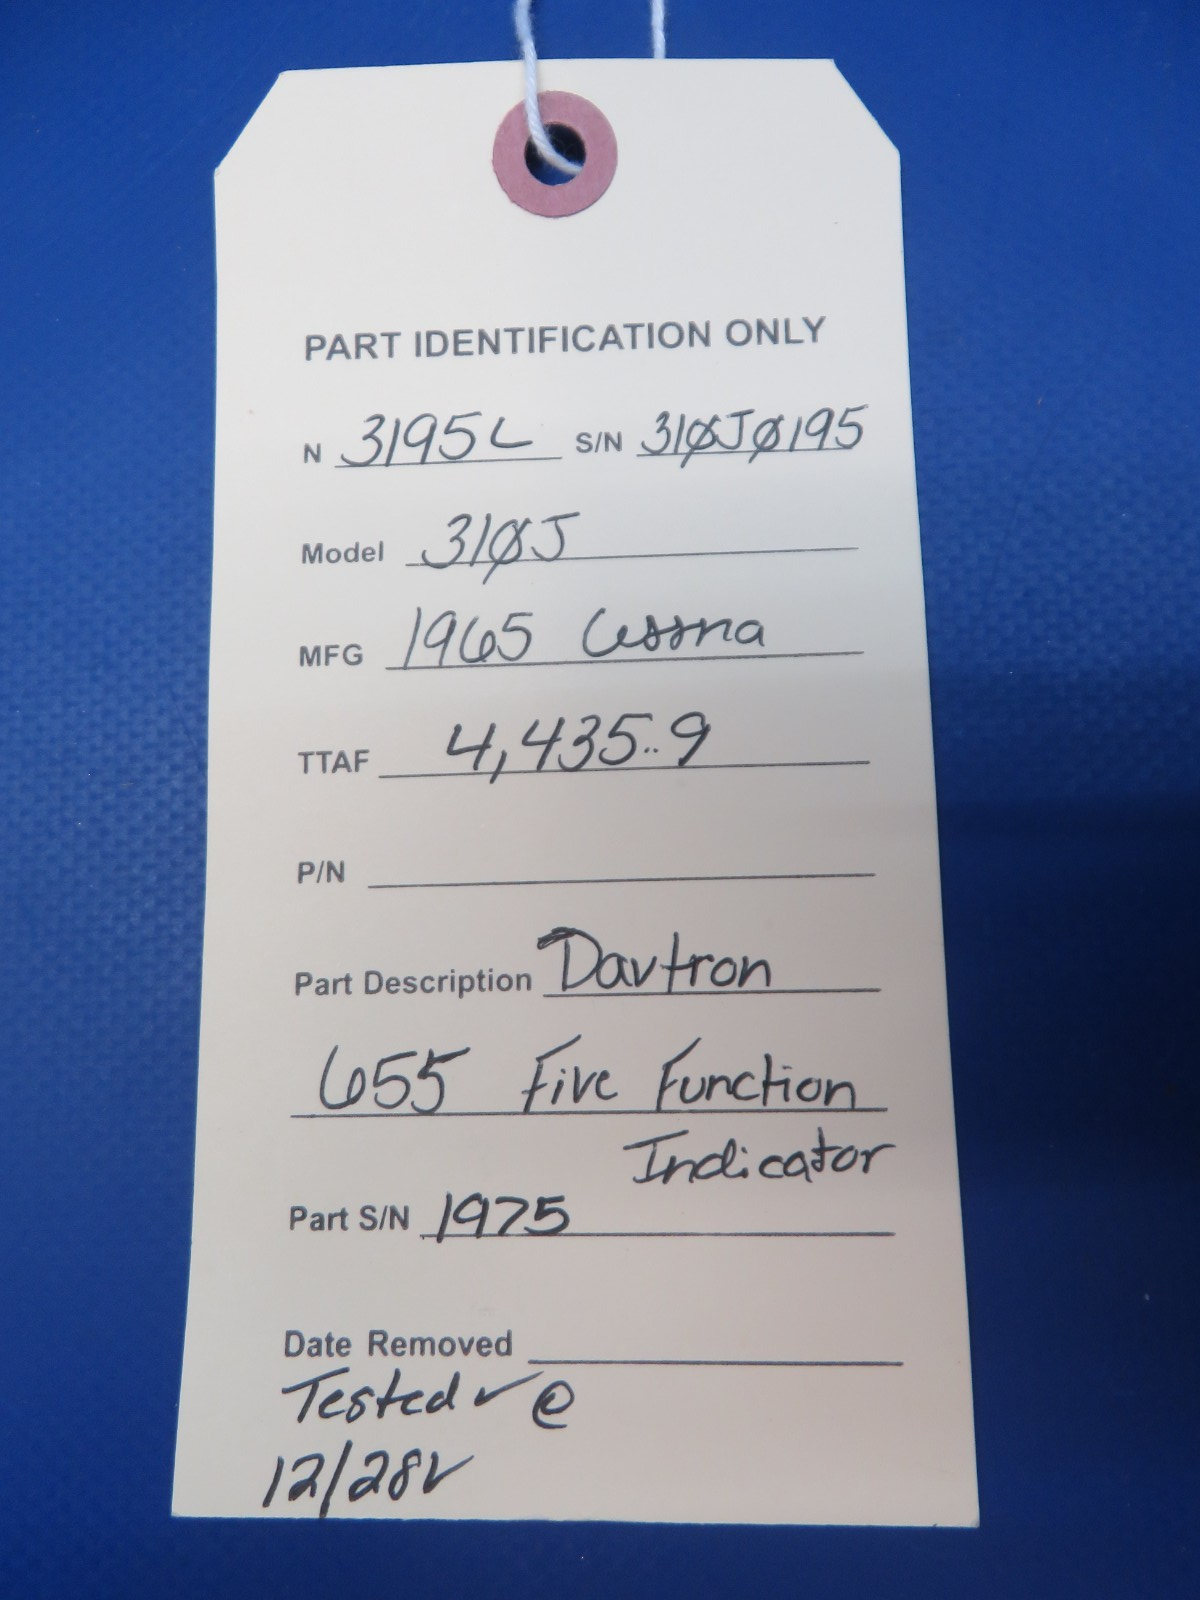 PART IDENTIFICATION ONLY
N 3195L S/N 310J0195
Model 310J
MFG 1965 Cessna
TTAF 4,435..9
P/N
Part Description Davtron
655 Five Function
Indicator
Part S/N 1975
Date Removed
Tested ✓ @
12/28V